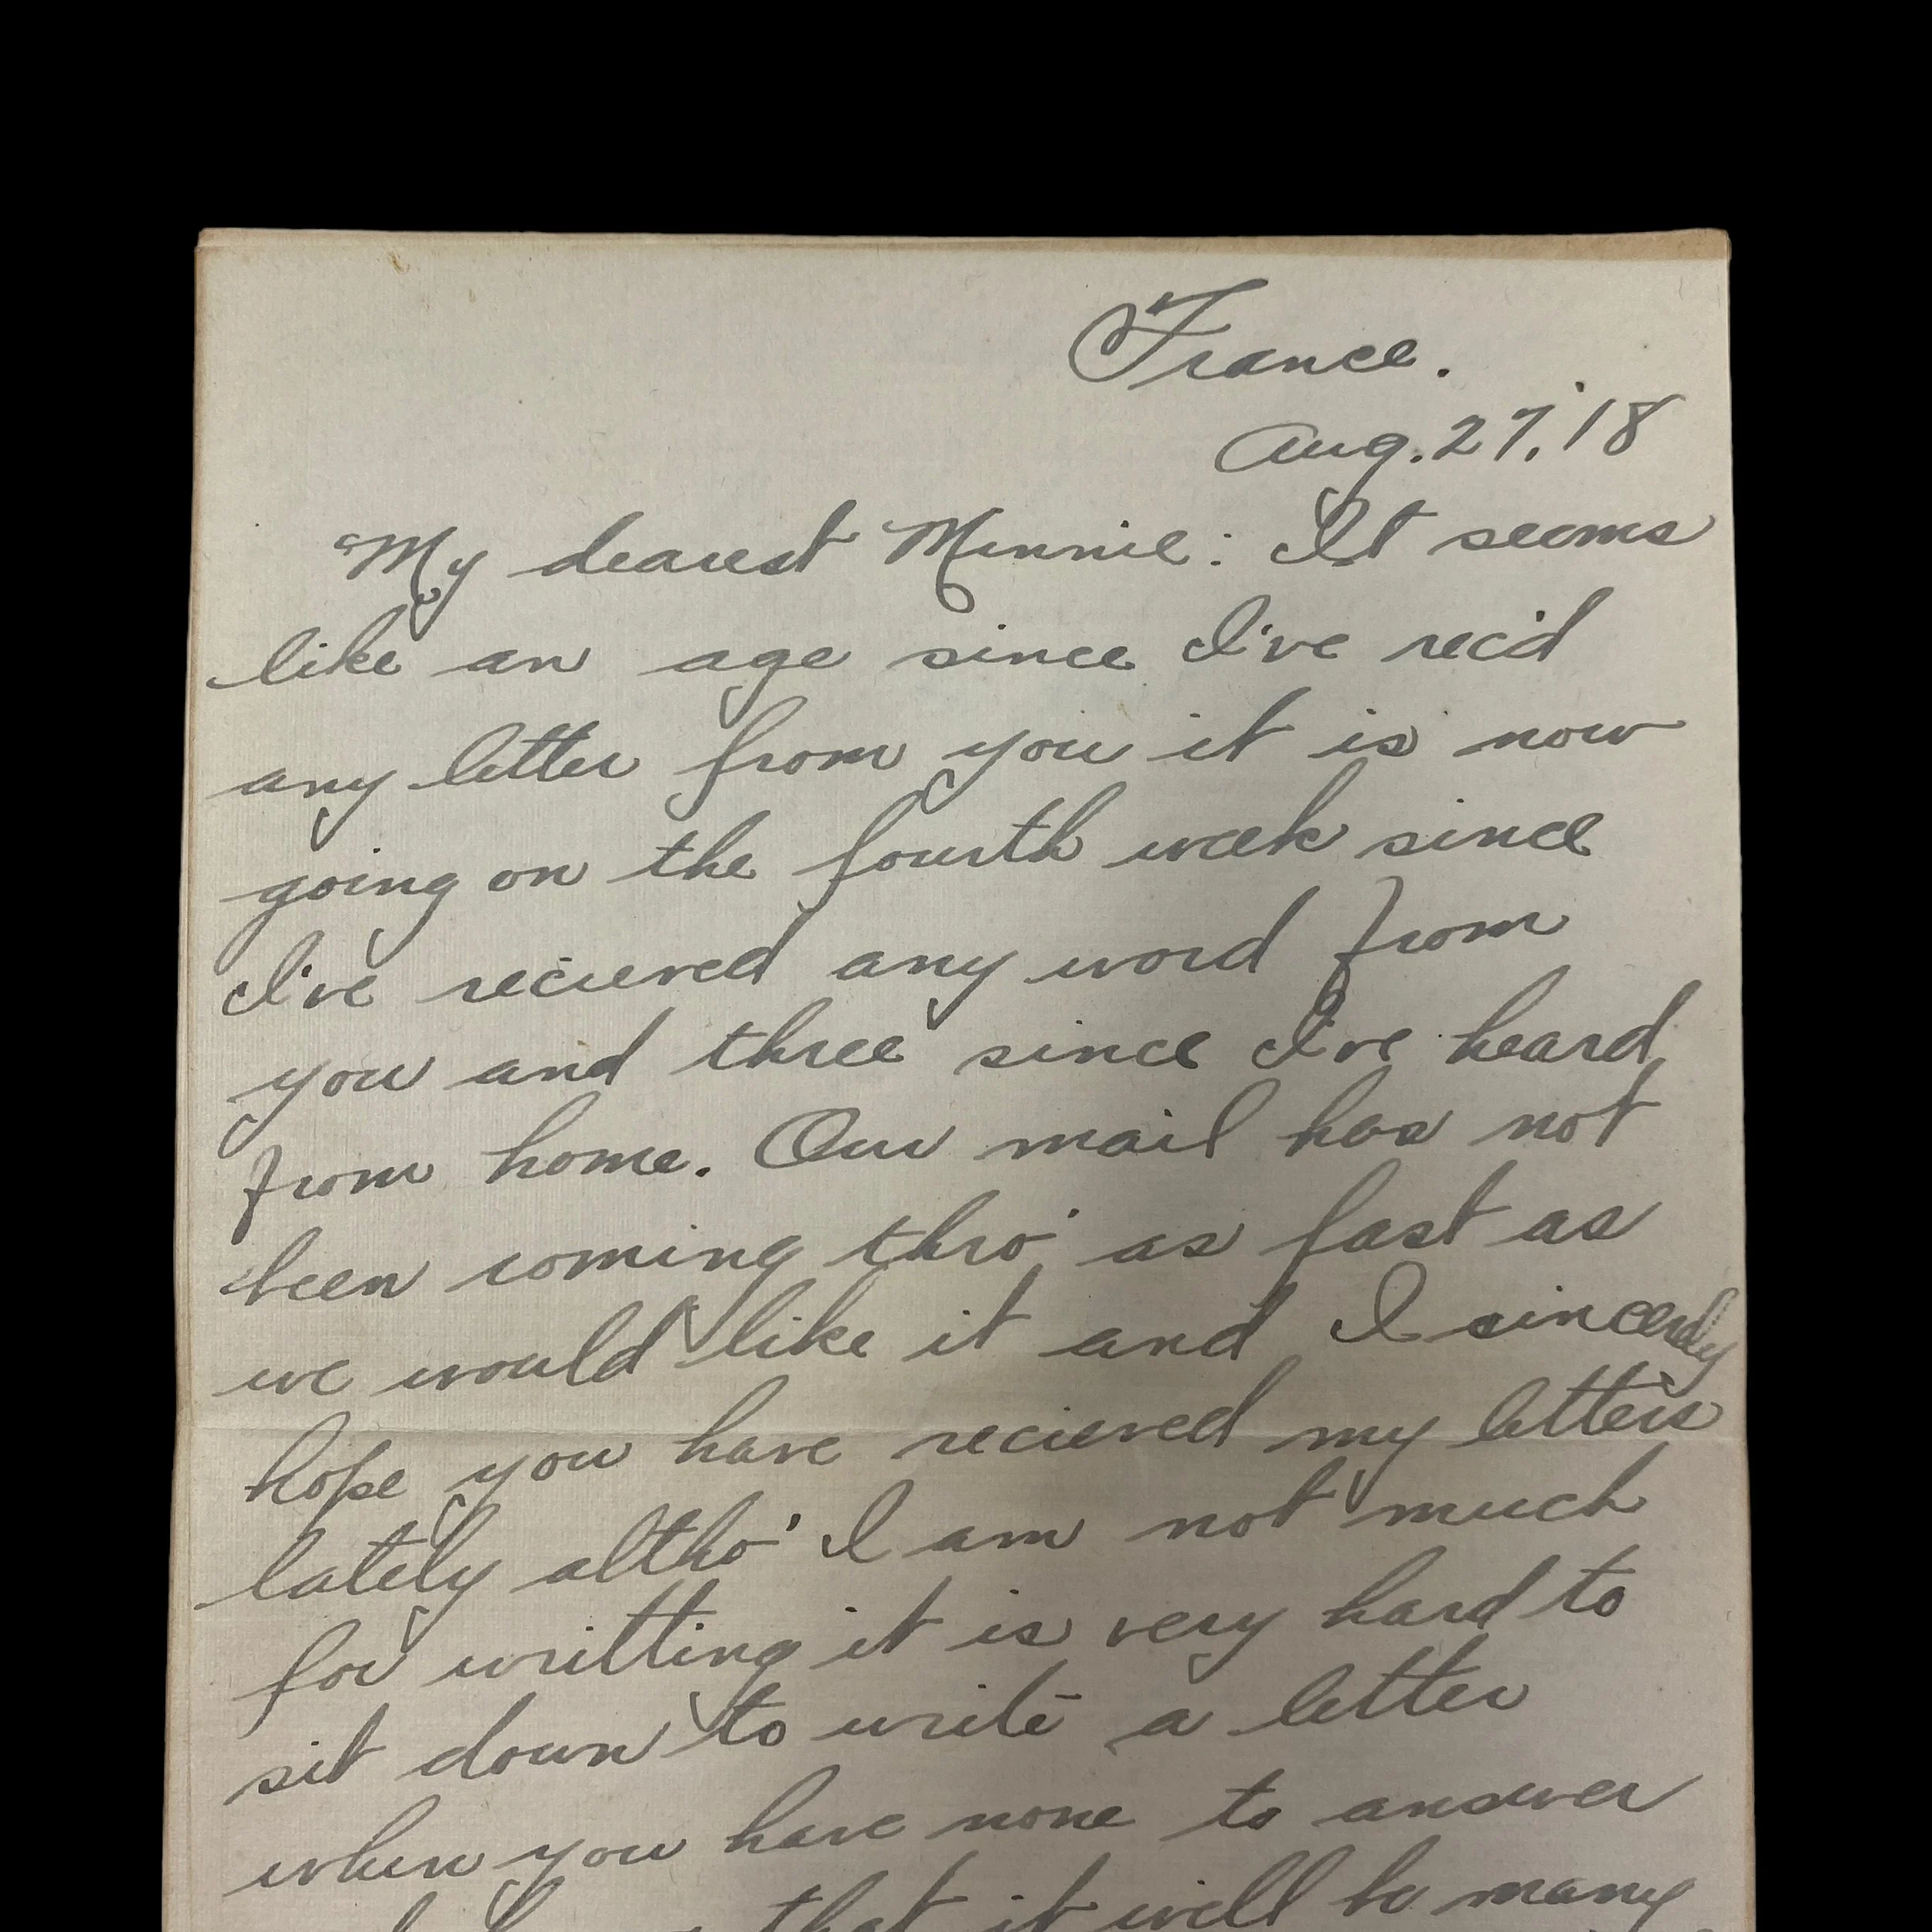 France.
Aug. 27, '18
My dearest Minnie: It seems
like an age since I've rec'd
any letter from you it is now
going on the fourth week since
I've recieved any word from
you and three since I've heard
from home. Our mail has not
been coming thro' as fast as
we would like it and I sincerely
hope you have recieved my letters
lately altho' I am not much
for writting it is very hard to
sit down to write a letter
when you have none to answer
that it will be many